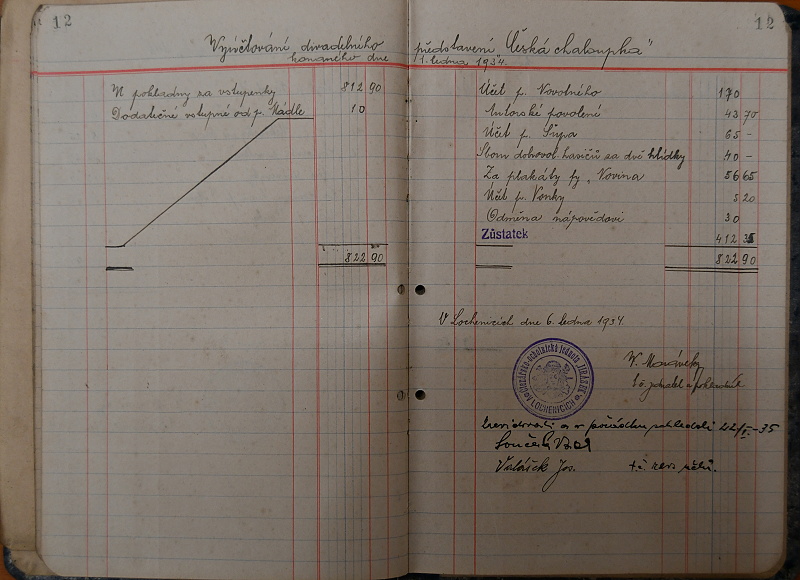 12
Vyúčtování divadelního
konaného dne
Z pokladny za vstupenky 812 90
Dodatečné vstupné od p. Mádle 10
822 90
12
představení "Česká chaloupka"
1. ledna 1934.
Účet p. Novotného 170
Autorské povolení 43 70
Účet p. Šípa 65 -
Sbor dobrovol. hasičů za dvě hlídky 40 -
Za plakáty fy. Novina 56 65
Účet p. Vonky 5 20
Odměna nápovědovi 30
Zůstatek 412 35
822 90
V Lochenicích dne 6. ledna 1934.
Čtenářsko-ochotnická jednota JIRÁSEK v LOCHENICÍCH
V. Morávek
t. č. jednatel a pokladník
Revidovali a v pořádku shledali 22/I.-35
Valášek Jos. t.č. revis. účtů.